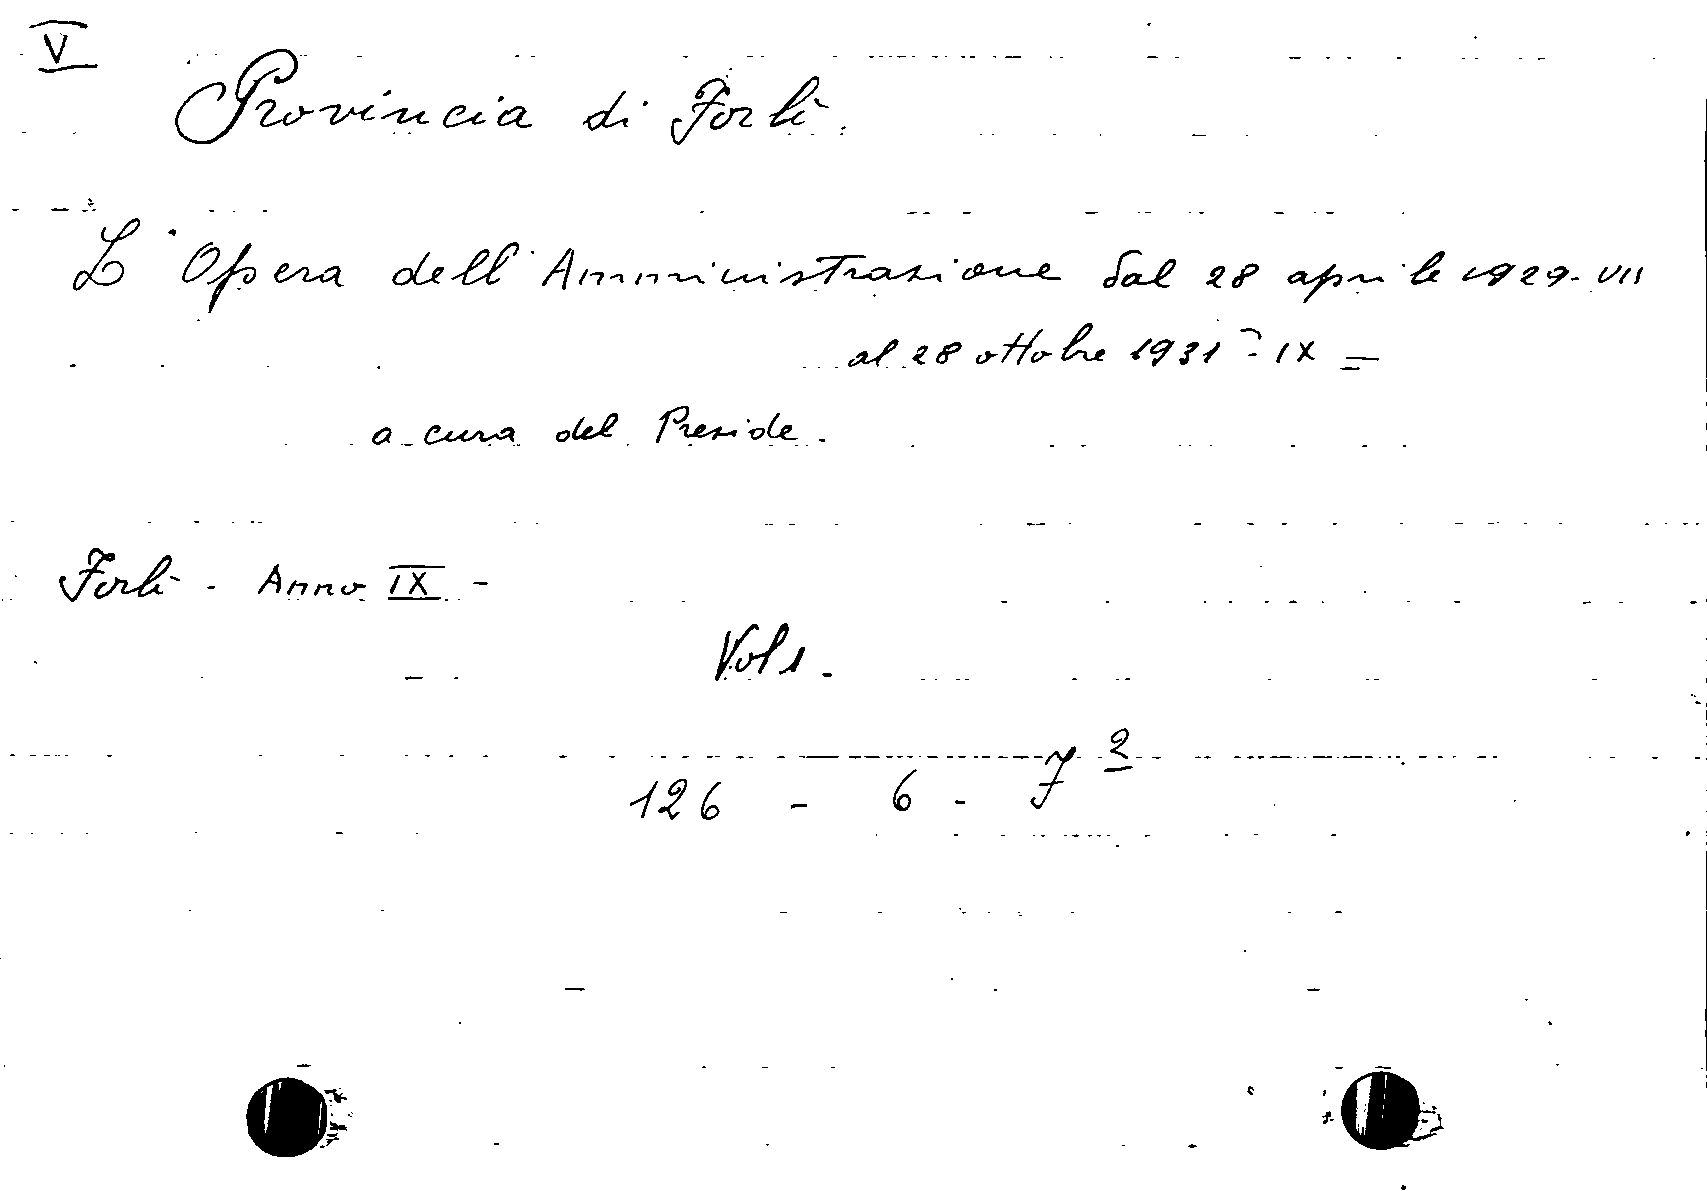 V
Provincia di Forlì.
L'Opera dell'Amministrazione dal 28 aprile 1929-VII
al 28 ottobre 1931 - IX =
a cura del Preside.
Forlì - Anno IX -
Vol 1.
126 - 6 - 7 2